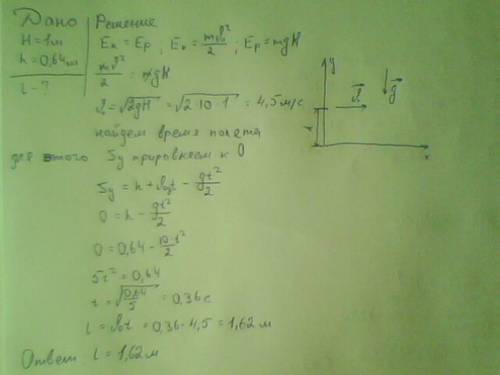 Дано
H = 1м
h = 0,64м
l - ?
Решение
Eк = Eр ; Eк = mϑ²/2 ; Eр = mgH
mϑ²/2 = mgH
ϑ = √2gH = √2·10·1 = 4,5 м/с
найдем время полета
для этого Sy приравняем к 0
Sy = h + ϑ₀yt - gt²/2
0 = h - gt²/2
0 = 0,64 - 10·t²/2
5t² = 0,64
t = √0,64/5 = 0,36 с
l = ϑ₀t = 0,36·4,5 = 1,62 м
Ответ l = 1,62 м
y
ϑ
g
x